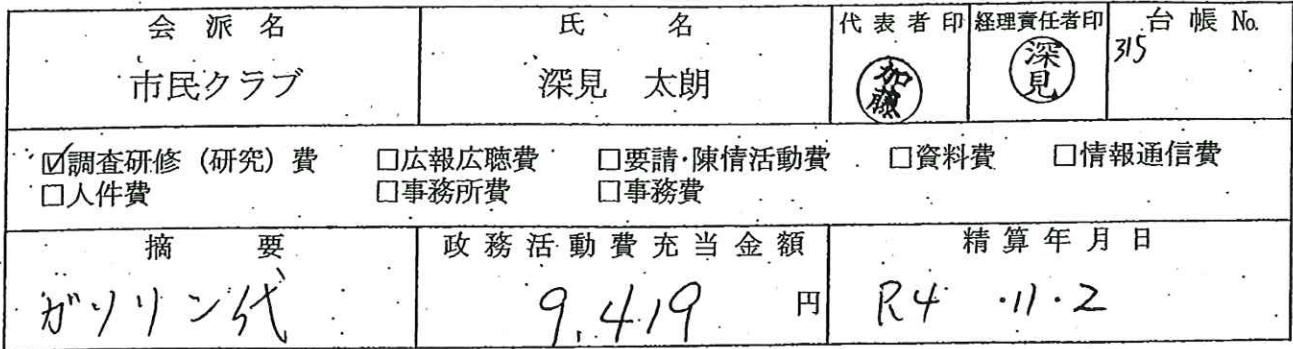 会派名 氏名 代表者印 経理責任者印 台帳No.
市民クラブ 深見 太朗 加藤 深見 315
☑調査研修（研究）費 □広報広聴費 □要請・陳情活動費 □資料費 □情報通信費
□人件費 □事務所費 □事務費
摘要 政務活動費充当金額 精算年月日
ガソリン代 9,419 円 R4・11・2